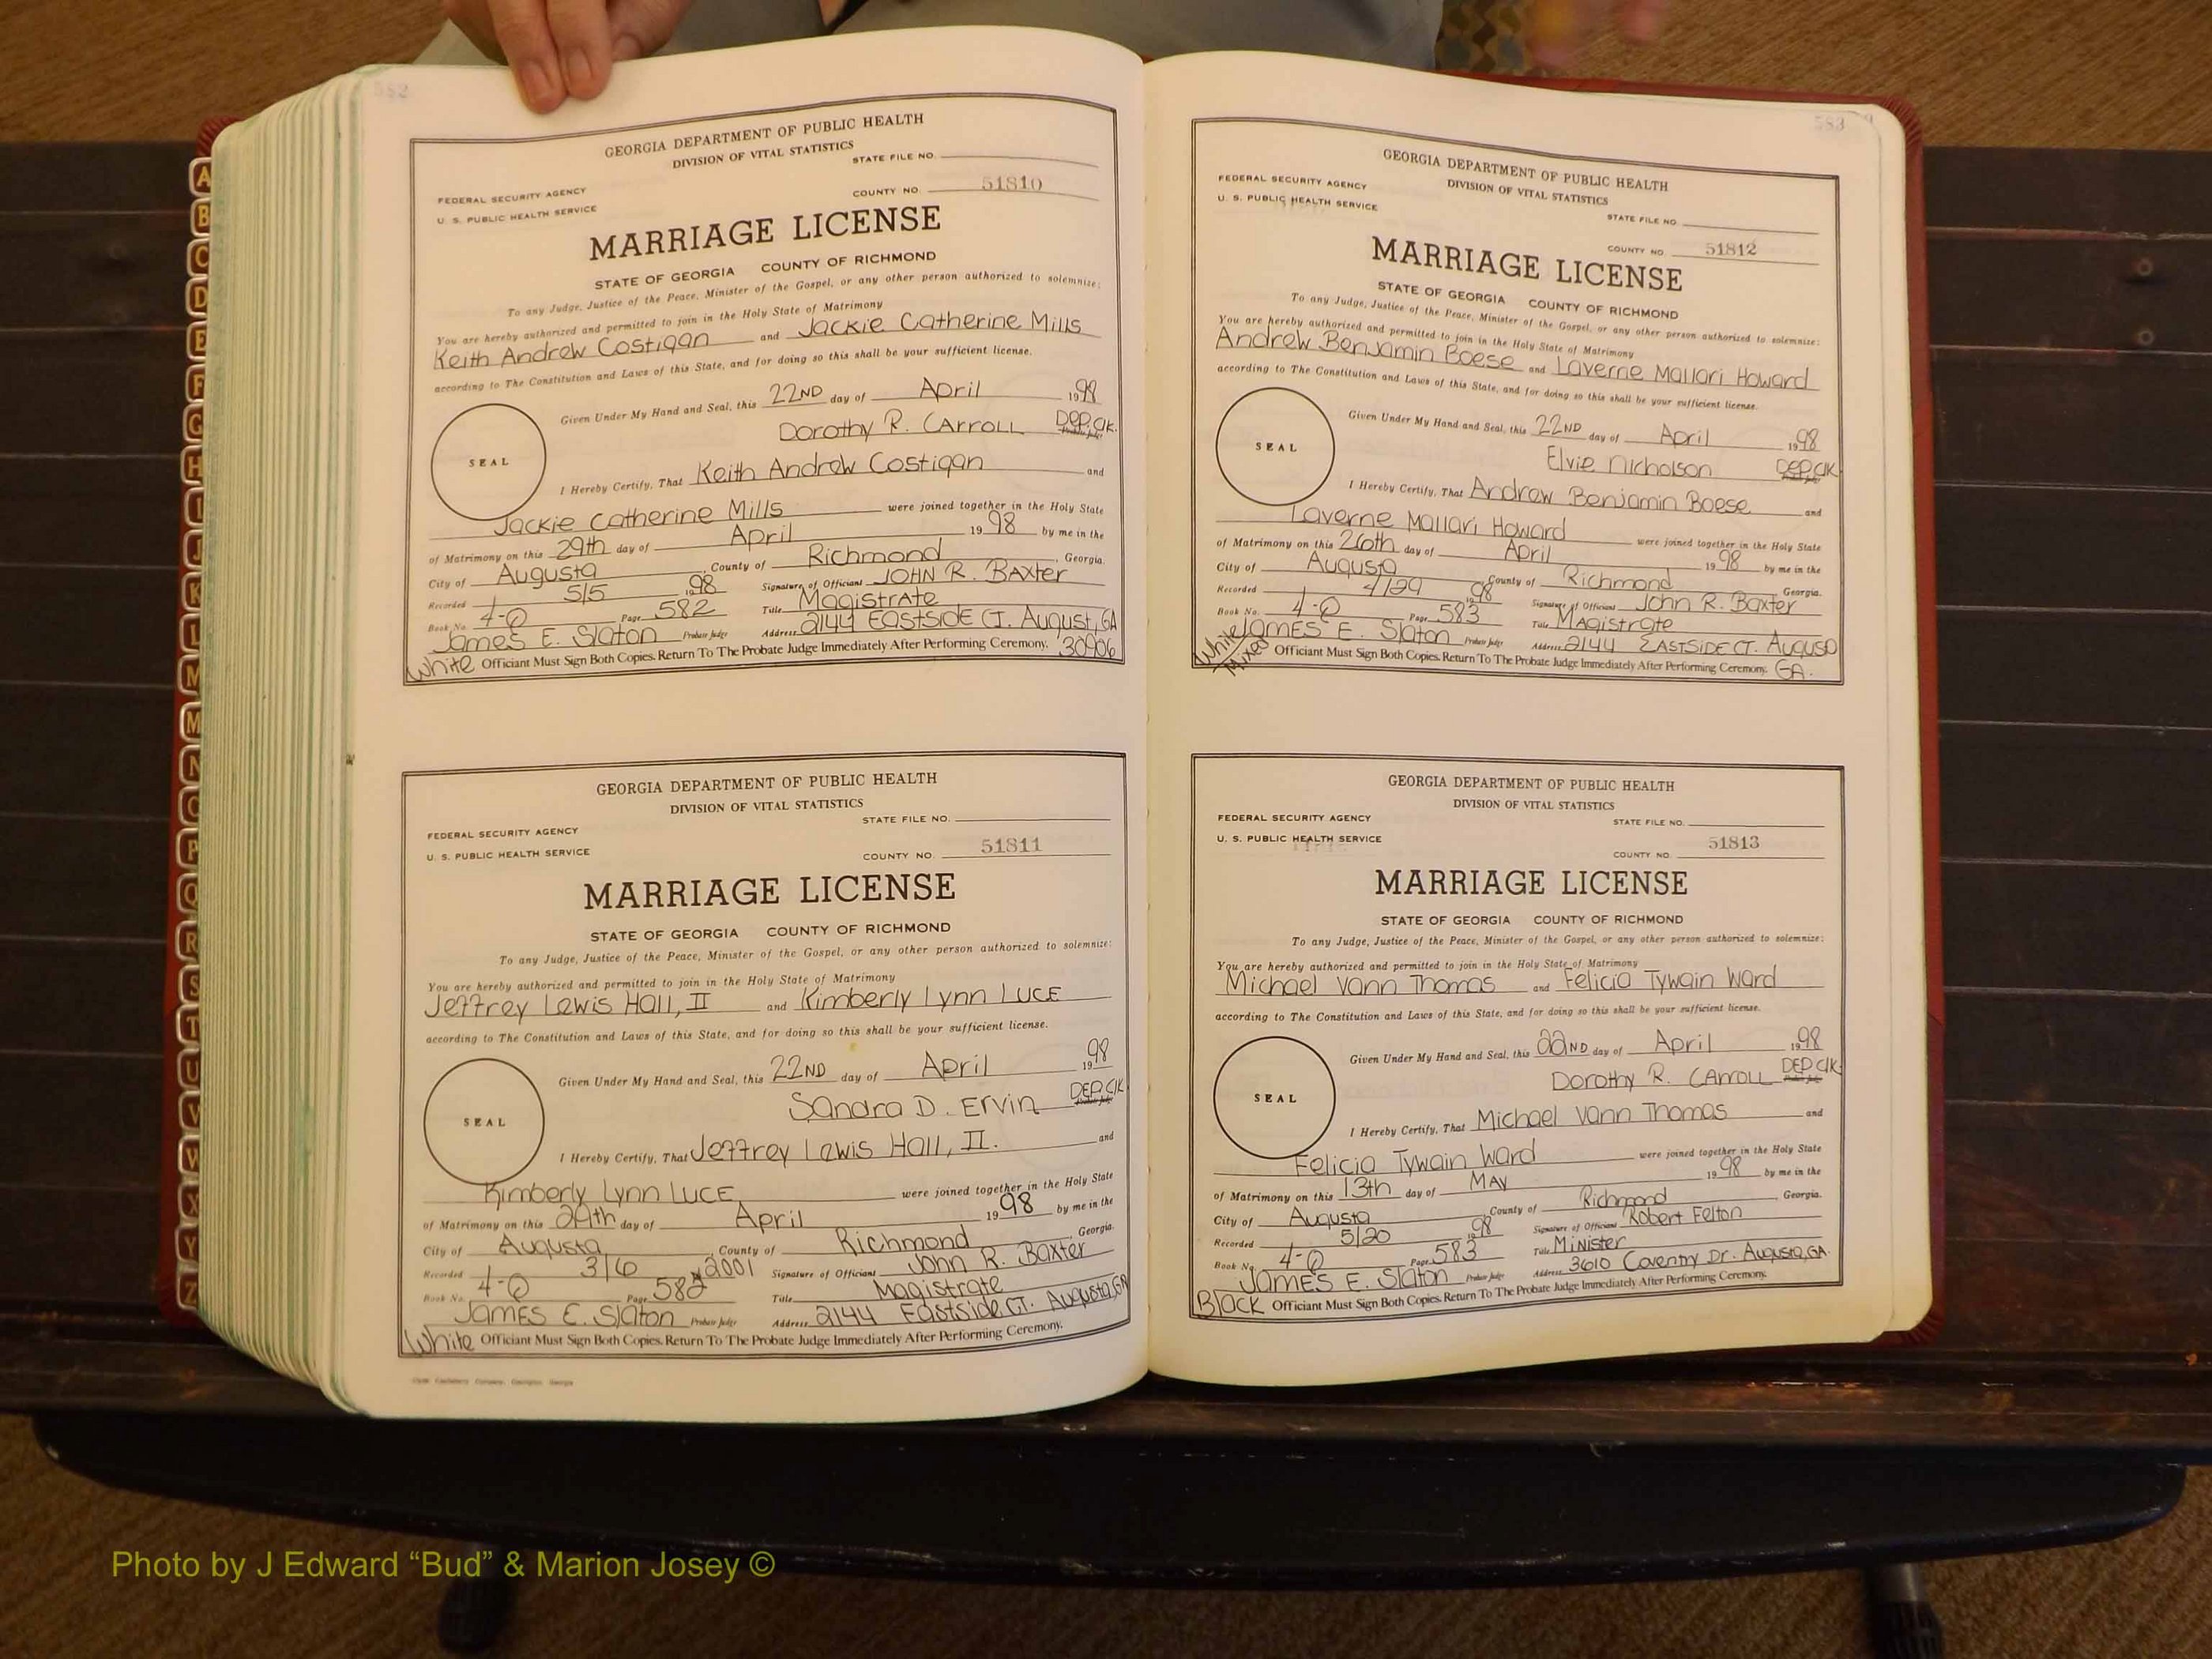 582
GEORGIA DEPARTMENT OF PUBLIC HEALTH
DIVISION OF VITAL STATISTICS
STATE FILE NO.
FEDERAL SECURITY AGENCY
COUNTY NO. 51810
U. S. PUBLIC HEALTH SERVICE
MARRIAGE LICENSE
STATE OF GEORGIA COUNTY OF RICHMOND
To any Judge, Justice of the Peace, Minister of the Gospel, or any other person authorized to solemnize:
You are hereby authorized and permitted to join in the Holy State of Matrimony
Keith Andrew Costigan and Jackie Catherine Mills
according to The Constitution and Laws of this State, and for doing so this shall be your sufficient license.
Given Under My Hand and Seal, this 22ND day of April 1998
Dorothy R. CARROLL DEP. Clk.
SEAL
I Hereby Certify, That Keith Andrew Costigan and
Jackie Catherine Mills were joined together in the Holy State
of Matrimony on this 29th day of April 1998 by me in the
City of Augusta, County of Richmond, Georgia.
Recorded 5/5 1998 Signature of Officiant JOHN R. BAXter
Book No. 4-Q Page 582 Title MagistrAte
James E. Slaton Probate Judge Address 2144 EASTSIDE CT. August, GA
White Officiant Must Sign Both Copies. Return To The Probate Judge Immediately After Performing Ceremony. 30906
GEORGIA DEPARTMENT OF PUBLIC HEALTH
DIVISION OF VITAL STATISTICS
STATE FILE NO.
FEDERAL SECURITY AGENCY
COUNTY NO. 51811
U. S. PUBLIC HEALTH SERVICE
MARRIAGE LICENSE
STATE OF GEORGIA COUNTY OF RICHMOND
To any Judge, Justice of the Peace, Minister of the Gospel, or any other person authorized to solemnize:
You are hereby authorized and permitted to join in the Holy State of Matrimony
Jeffrey Lewis Hall, II and Kimberly Lynn LUCE
according to The Constitution and Laws of this State, and for doing so this shall be your sufficient license.
Given Under My Hand and Seal, this 22ND day of April 1998
Sandra D. Ervin DEP. Clk
SEAL
I Hereby Certify, That Jeffrey Lewis Hall, II. and
Kimberly Lynn LUCE were joined together in the Holy State
of Matrimony on this 29th day of April 1998 by me in the
City of Augusta, County of Richmond, Georgia.
Recorded 3/6 2001 Signature of Officiant John R. Baxter
Book No. 4-Q Page 582 Title Magistrate
JAMES E. Slaton Probate Judge Address 2144 Eastside CT. Augusta, GA
White Officiant Must Sign Both Copies. Return To The Probate Judge Immediately After Performing Ceremony.
583
GEORGIA DEPARTMENT OF PUBLIC HEALTH
DIVISION OF VITAL STATISTICS
FEDERAL SECURITY AGENCY
U. S. PUBLIC HEALTH SERVICE
STATE FILE NO.
COUNTY NO. 51812
MARRIAGE LICENSE
STATE OF GEORGIA COUNTY OF RICHMOND
To any Judge, Justice of the Peace, Minister of the Gospel, or any other person authorized to solemnize:
You are hereby authorized and permitted to join in the Holy State of Matrimony
Andrew Benjamin Boese and Laverne Mallari Howard
according to The Constitution and Laws of this State, and for doing so this shall be your sufficient license.
Given Under My Hand and Seal, this 22ND day of April 1998
Elvie Nicholson DEP. Clk
SEAL
I Hereby Certify, That Andrew Benjamin Boese and
Laverne Mallari Howard were joined together in the Holy State
of Matrimony on this 26th day of April 1998 by me in the
City of Augusta, County of Richmond Georgia.
Recorded 4/29 1998 Signature of Officiant John R. Baxter
Book No. 4-Q Page 583 Title MAgistrate
JAMES E. Slaton Probate Judge Address 2144 EASTSIDE CT. August
White Mixed Officiant Must Sign Both Copies. Return To The Probate Judge Immediately After Performing Ceremony. GA.
GEORGIA DEPARTMENT OF PUBLIC HEALTH
DIVISION OF VITAL STATISTICS
FEDERAL SECURITY AGENCY
STATE FILE NO.
U. S. PUBLIC HEALTH SERVICE
COUNTY NO. 51813
MARRIAGE LICENSE
STATE OF GEORGIA COUNTY OF RICHMOND
To any Judge, Justice of the Peace, Minister of the Gospel, or any other person authorized to solemnize:
You are hereby authorized and permitted to join in the Holy State of Matrimony
Michael Vann Thomas and Felicia Tywain Ward
according to The Constitution and Laws of this State, and for doing so this shall be your sufficient license.
Given Under My Hand and Seal, this 22ND day of April 1998
Dorothy R. CArroll DEP Clk
SEAL
I Hereby Certify, That Michael Vann Thomas and
Felicia Tywain Ward were joined together in the Holy State
of Matrimony on this 13th day of MAY 1998 by me in the
City of Augusta County of Richmond, Georgia.
Recorded 5/20 1998 Signature of Officiant Robert Felton
Book No. 4-Q Page 583 Title Minister
JAMES E. Slaton Probate Judge Address 3610 Coventry Dr. Augusta, GA.
Black Officiant Must Sign Both Copies. Return To The Probate Judge Immediately After Performing Ceremony.
A
B
C
D
E
F
G
H
I
J
K
L
M
M
N
O
P
Q
R
S
T
U
V
W
X
Y
Z
Photo by J Edward “Bud” & Marion Josey ©